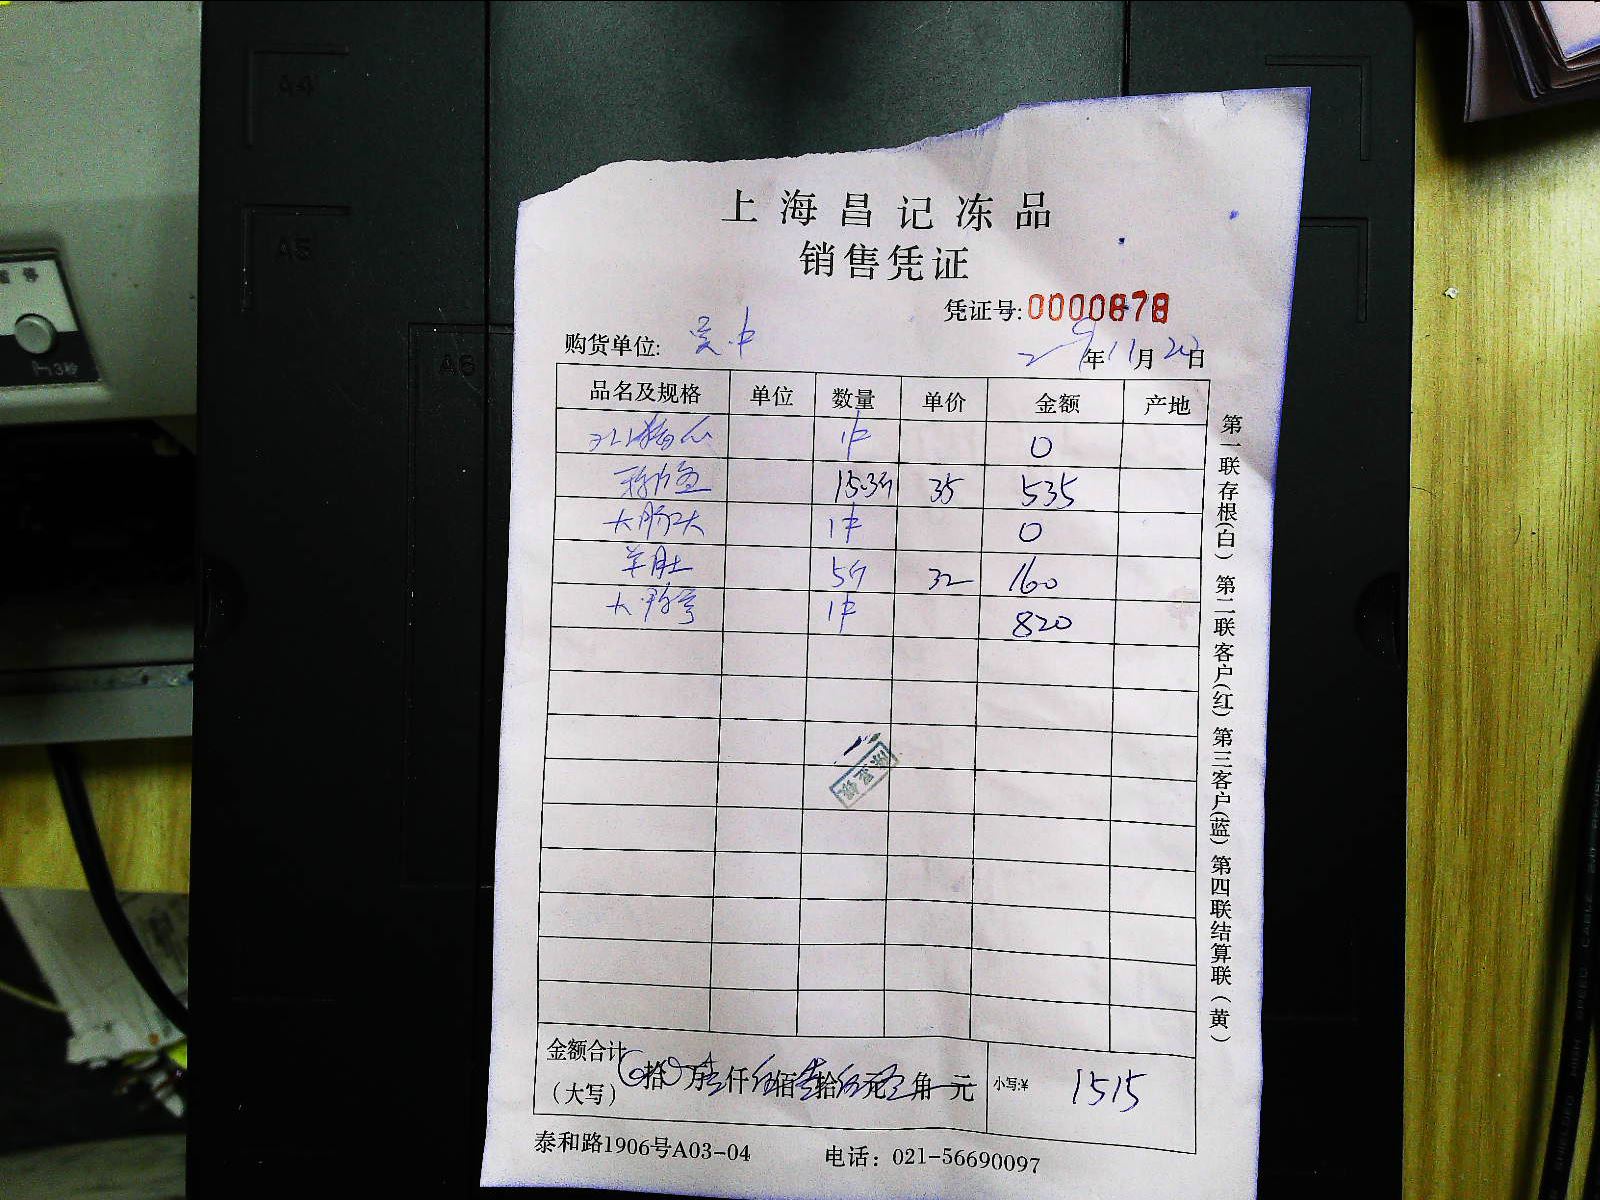 A4
A5
A6
3秒
上海昌记冻品
销售凭证
凭证号:0000878
购货单位: 吴中
年11月20日
品名及规格 单位 数量 单价 金额 产地
1件 0
15.3斤 35 535
大肠头 1件 0
羊肚 5斤 32 160
大鸭 1件 820
金额合计
(大写) 拾 万 仟 佰 拾 元 角 元 小写:¥ 1515
泰和路1906号A03-04 电话: 021-56690097
第一联存根(白) 第二联客户(红) 第三客户(蓝) 第四联结算联(黄)